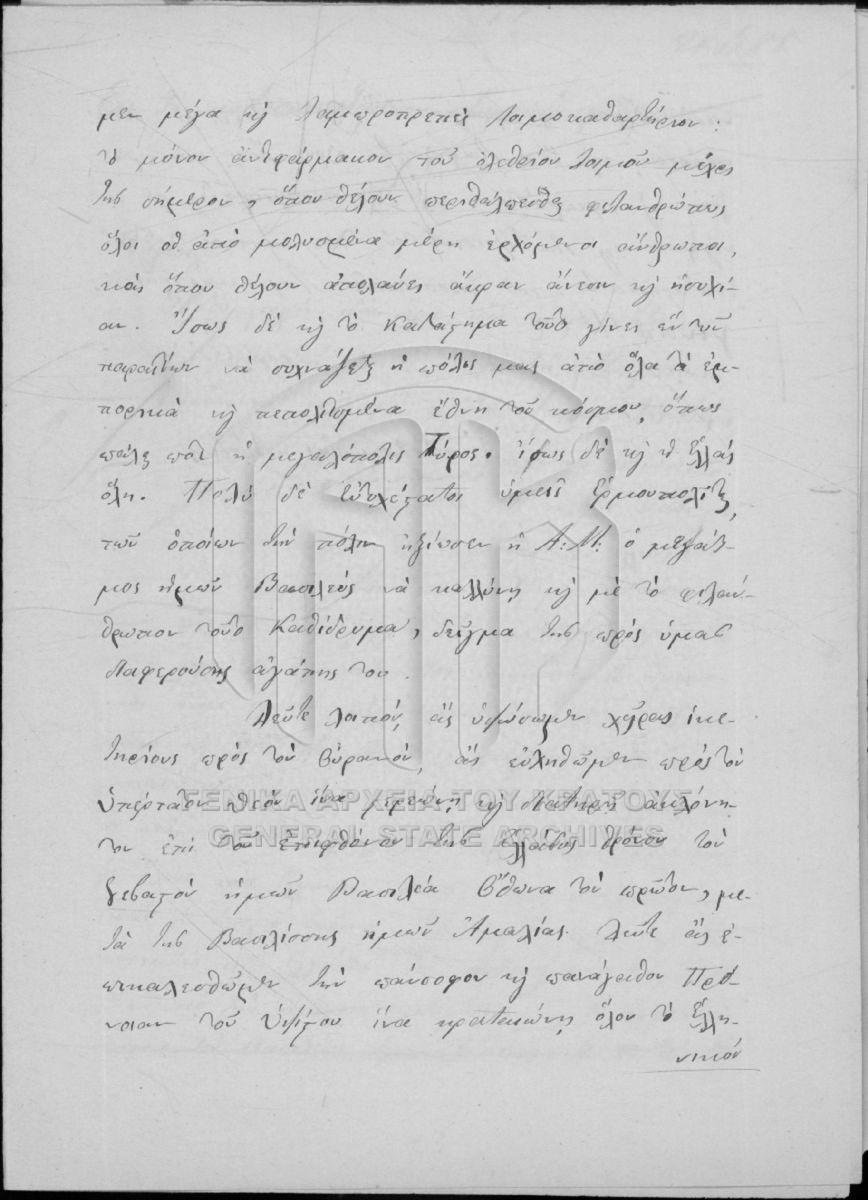 μεν μέγα κỳ λαμπροπρεπές Λοιμοκαθαρτήριον:
τὸ μόνον ἀντιφάρμακον τοῦ ὀλεθρίου λοιμοῦ μέχρι
τῆς σήμερον, ὅπου θέλουν περιθάλπεσθαι φιλανθρώπως
ὅλοι οἱ ἀπὸ μολυσμένα μέρη ἐρχόμενοι ἄνθρωποι,
καὶ ὅπου θέλουν ἀπολαύει ἄκραν ἄνεσιν κỳ ἡσυχί-
αν. Ἴσως δὲ κỳ τὸ Κατάστημα τοῦτο γίνει ἐκ τῶν
παραιτίων νὰ συχνάζεται ἡ πόλις μας ἀπὸ ὅλα τὰ ἐμ-
πορικὰ κỳ πεπολιτισμένα ἔθνη τοῦ κόσμου, ὅπως
ποτὲ ἡ μεγαλόπολις Τύρος. ἴσως δὲ κỳ ἡ Ἑλλὰς
ὅλη. Πολὺ δὲ εὐτυχέστατοι ὑμεῖς Ἑρμουπολῖται,
τῶν ὁποίων τὴν πόλιν ἠξίωσεν ἡ Α: Μ: ὁ μεγάθυ-
μος ἡμῶν Βασιλεὺς νὰ καλλύνῃ κỳ μὲ τὸ φιλάν-
θρωπον τοῦτο Καθίδρυμα, δεῖγμα τῆς πρὸς ὑμᾶς
διαφερούσης ἀγάπης του.
Δεῦτε λοιπόν, ἂς ὑψώσωμεν χεῖρας ἱκε-
τηρίους πρὸς τὸν Οὐρανόν, ἂς εὐχηθῶμεν πρὸς τὸν
Ὑπέρτατον Θεὸν ἵνα κỳ διατηρῇ ἀκλόνη-
τον ἐπὶ τοῦ τῆς Ἑλλάδος θρόνου τὸν
Σεβαστὸν ἡμῶν Βασιλέα Ὄθωνα τὸν πρῶτον, με-
τὰ τῆς Βασιλίσσης ἡμῶν Ἀμαλίας. Δεῦτε ἂς ἐ-
πικαλεσθῶμεν τὴν πάνσοφον κỳ πανάγαθον Πρό-
νοιαν τοῦ Ὑψίστου ἵνα κραταιώνῃ ὅλον τὸ Ἑλλη-
νικόν
ΓΕΝΙΚΑ ΑΡΧΕΙΑ ΤΟΥ ΚΡΑΤΟΥΣ
GENERAL STATE ARCHIVES